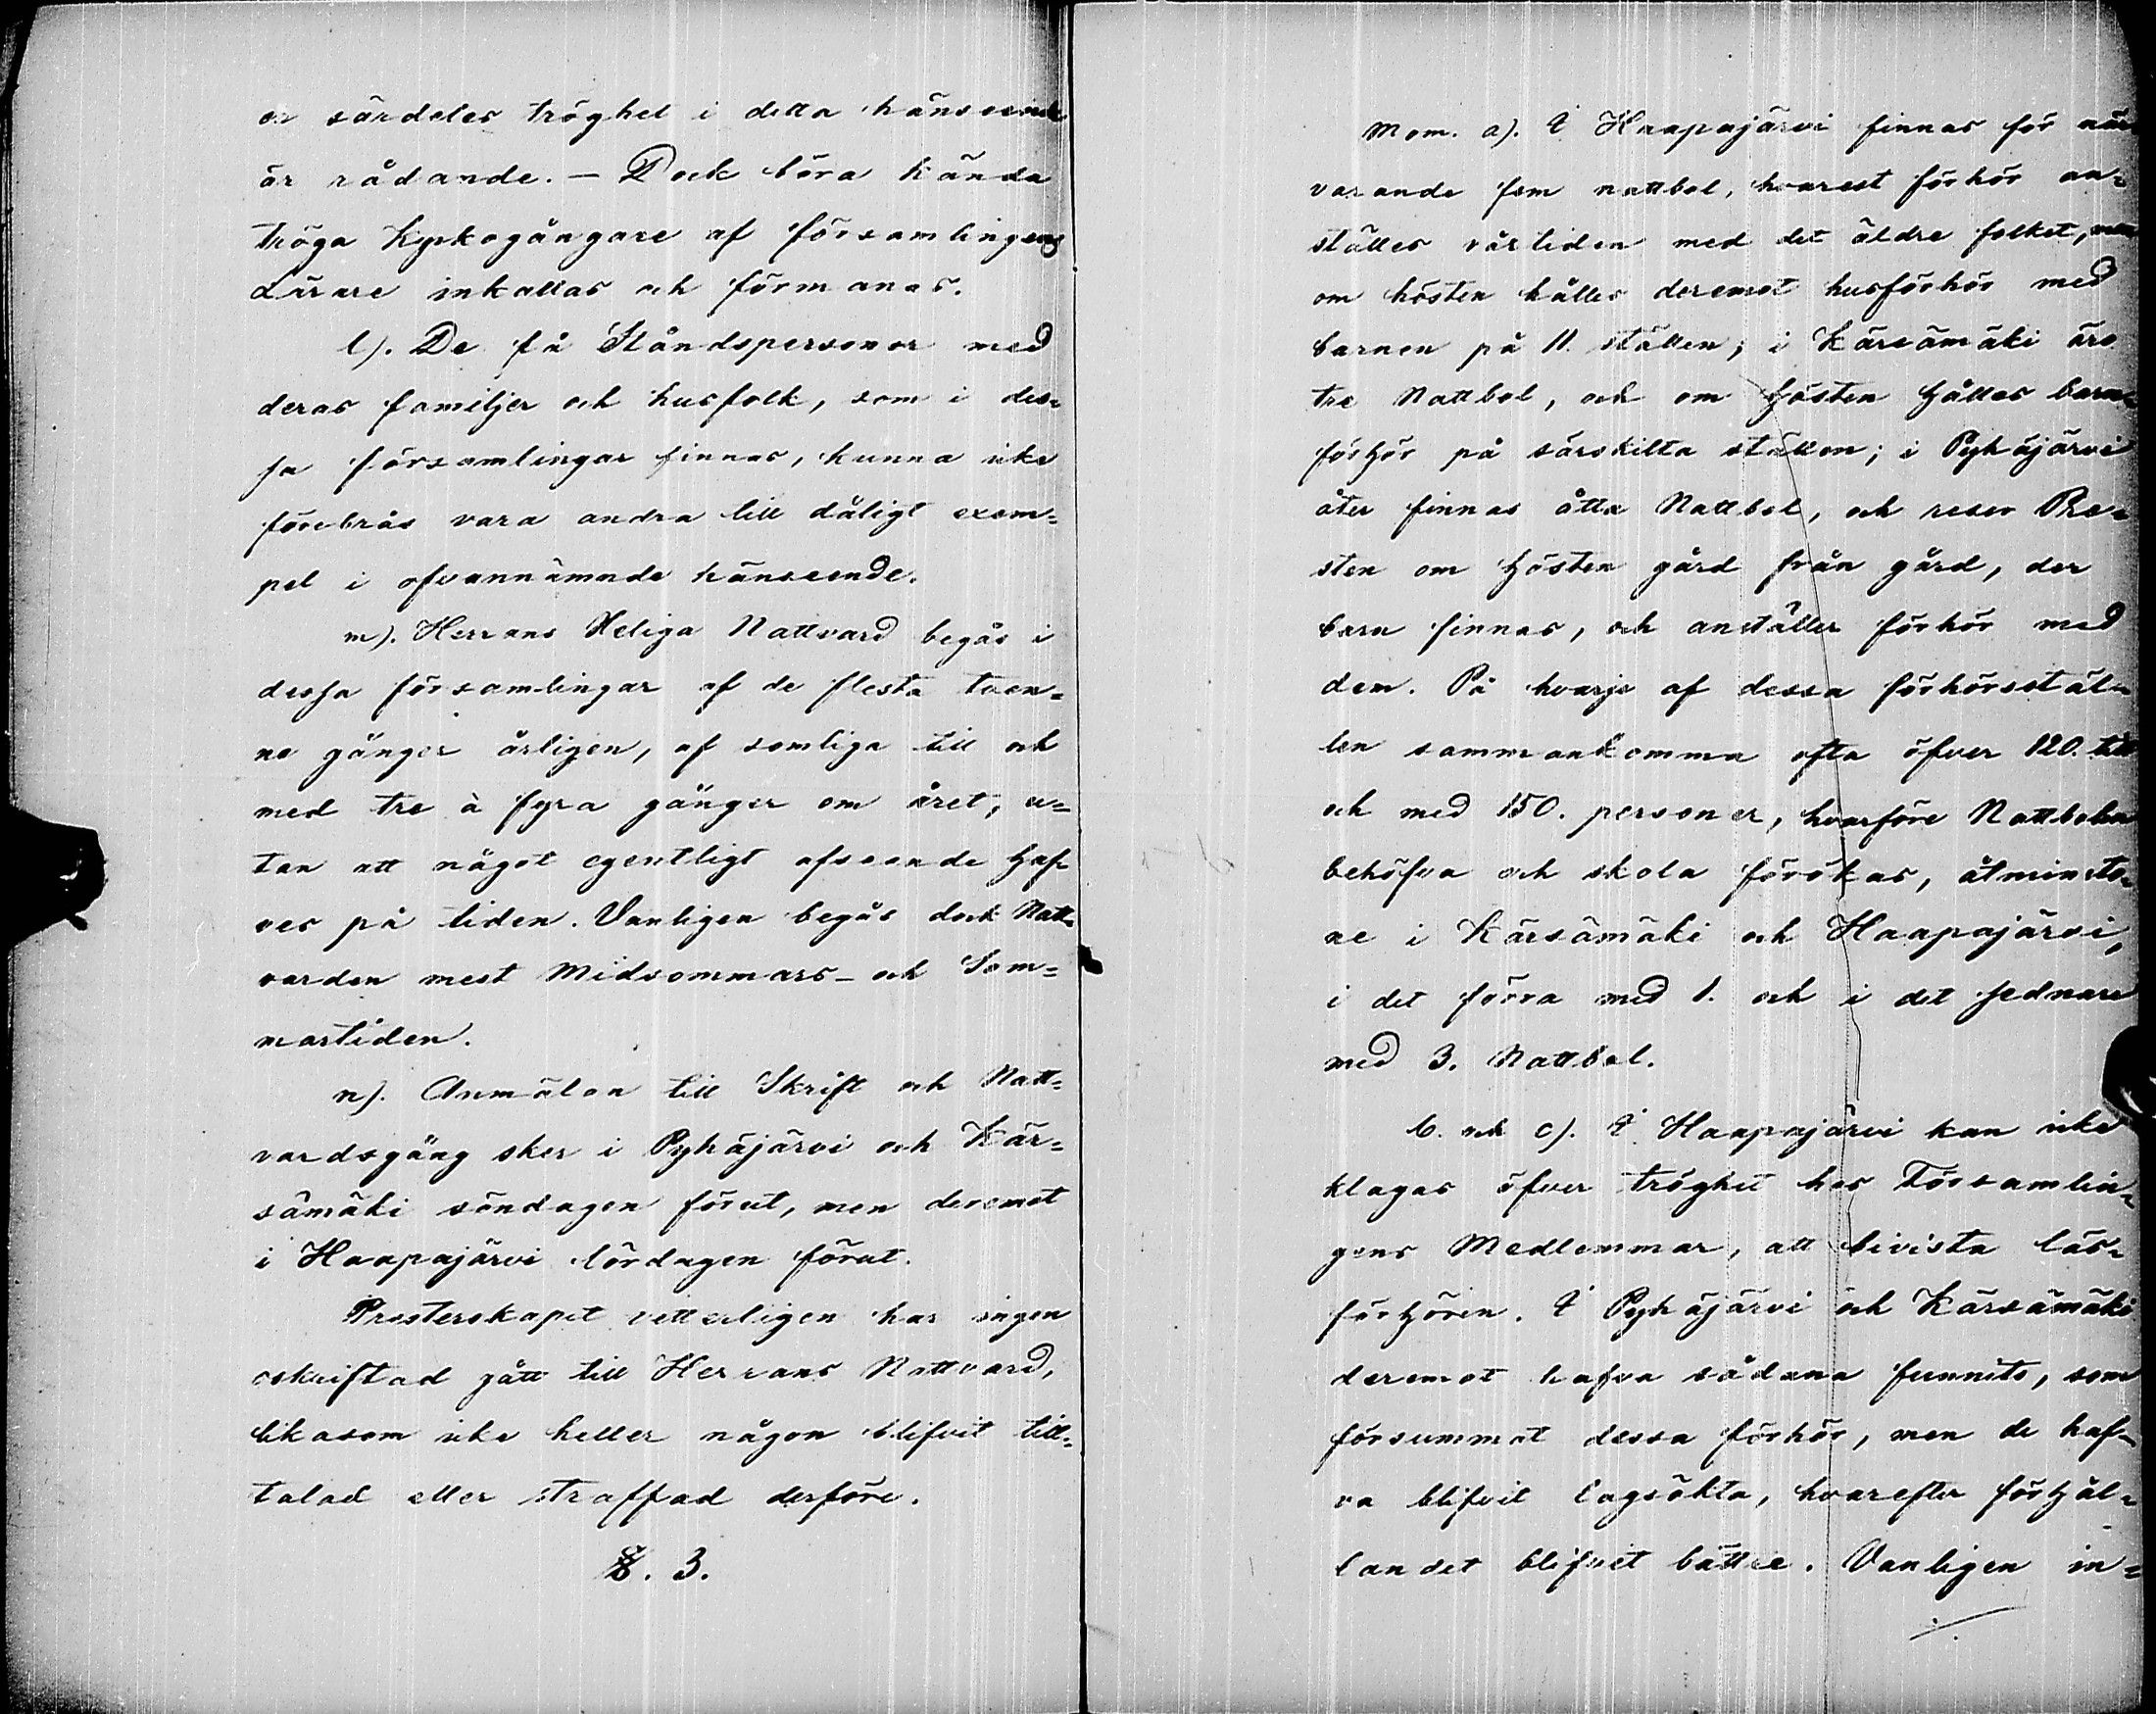 en särdeles tröghet i detta hänseende
är rådande. — Dock böra kända
tröga Kyrkogångare af församlingens
Lärare inkallas och förmanas.
l). De få Ståndspersoner med
deras familjer och husfolk, som i des-
sa församlingar finnas, kunna icke
förebrås vara andra till dåligt exem=
pel i ofvannämnde hänseende.
m). Herrans Heliga Nattvard begås i
dessa församlingar af de flesta tven=
ne gånger årligen, af somliga till och
med tre à fyra gånger om året, u=
tan att något egentligt afseende haf-
ves på tiden. Vanligen begås dock Natt-
varden mest Midsommars- och Som=
martiden.
n). Anmälan till Skrift och Natt=
vardsgång sker i Pyhäjärvi och Kär=
sämäki söndagen förut, men deremot
i Haapajärvi lördagen förut.
Presterskapet vetterligen har ingen
oskriftad gått till Herrans Nattvard,
likasom icke heller någon blifvit till=
talad eller straffad derföre.
§. 3.
Mom. a). I Haapajärvi finnas för när-
varande fem nattbol, hvarest förhör an=
ställes vårtiden med det äldre folket, men
om hösten hålles deremot husförhör med
barnen på 11. ställen; i Kärsämäki äro
tre Nattbol, och om hösten hålles barn-
förhör på särskilta ställen; i Pyhäjärvi
åter finnas åtta Nattbol, och reser Pre-
sten om hösten gård från gård, der
barn finnas, och anställer förhör med
dem. På hvarje af dessa förhörsstäl-
len sammankomma ofta öfver 120. till
och med 150. personer, hvarföre Nattbolen
behöfva och skola förökas, åtminsto-
ne i Kärsämäki och Haapajärvi,
i det förra med 1. och i det sednare
med 3. Nattbol.
b. och c). I Haapajärvi kan icke
klagas öfver tröghet hos Församlin-
gens Medlemmar, att bivista läs-
förhören. I Pyhäjärvi och Kärsämäki
deremot hafva sådana funnits, som
försummat dessa förhör, men de haf-
va blifvit lagsökta, hvarefter förhål-
landet blifvit bättre. Vanligen in=